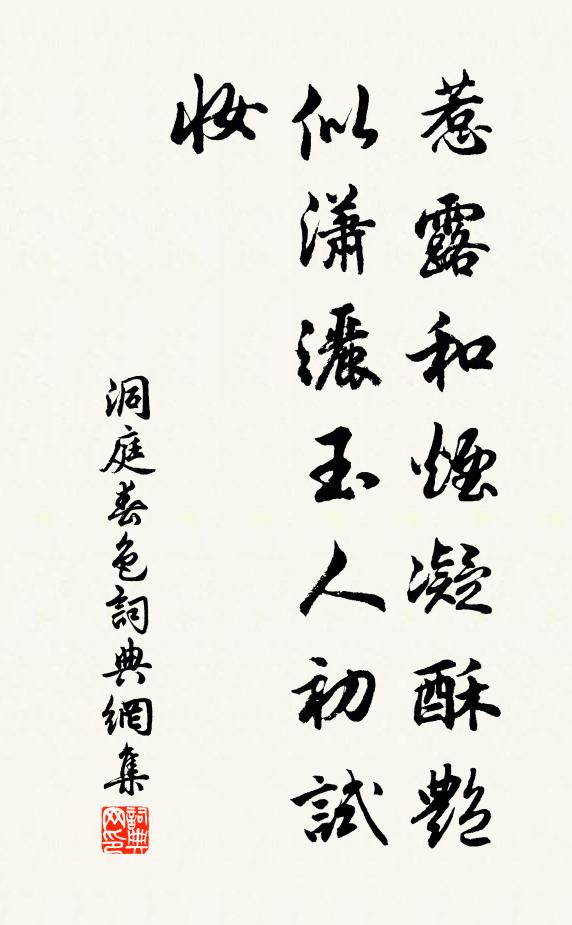 惹露和煙凝酥艷
似瀟灑玉人初試
妝
洞庭春色詞典網集
詞典網印